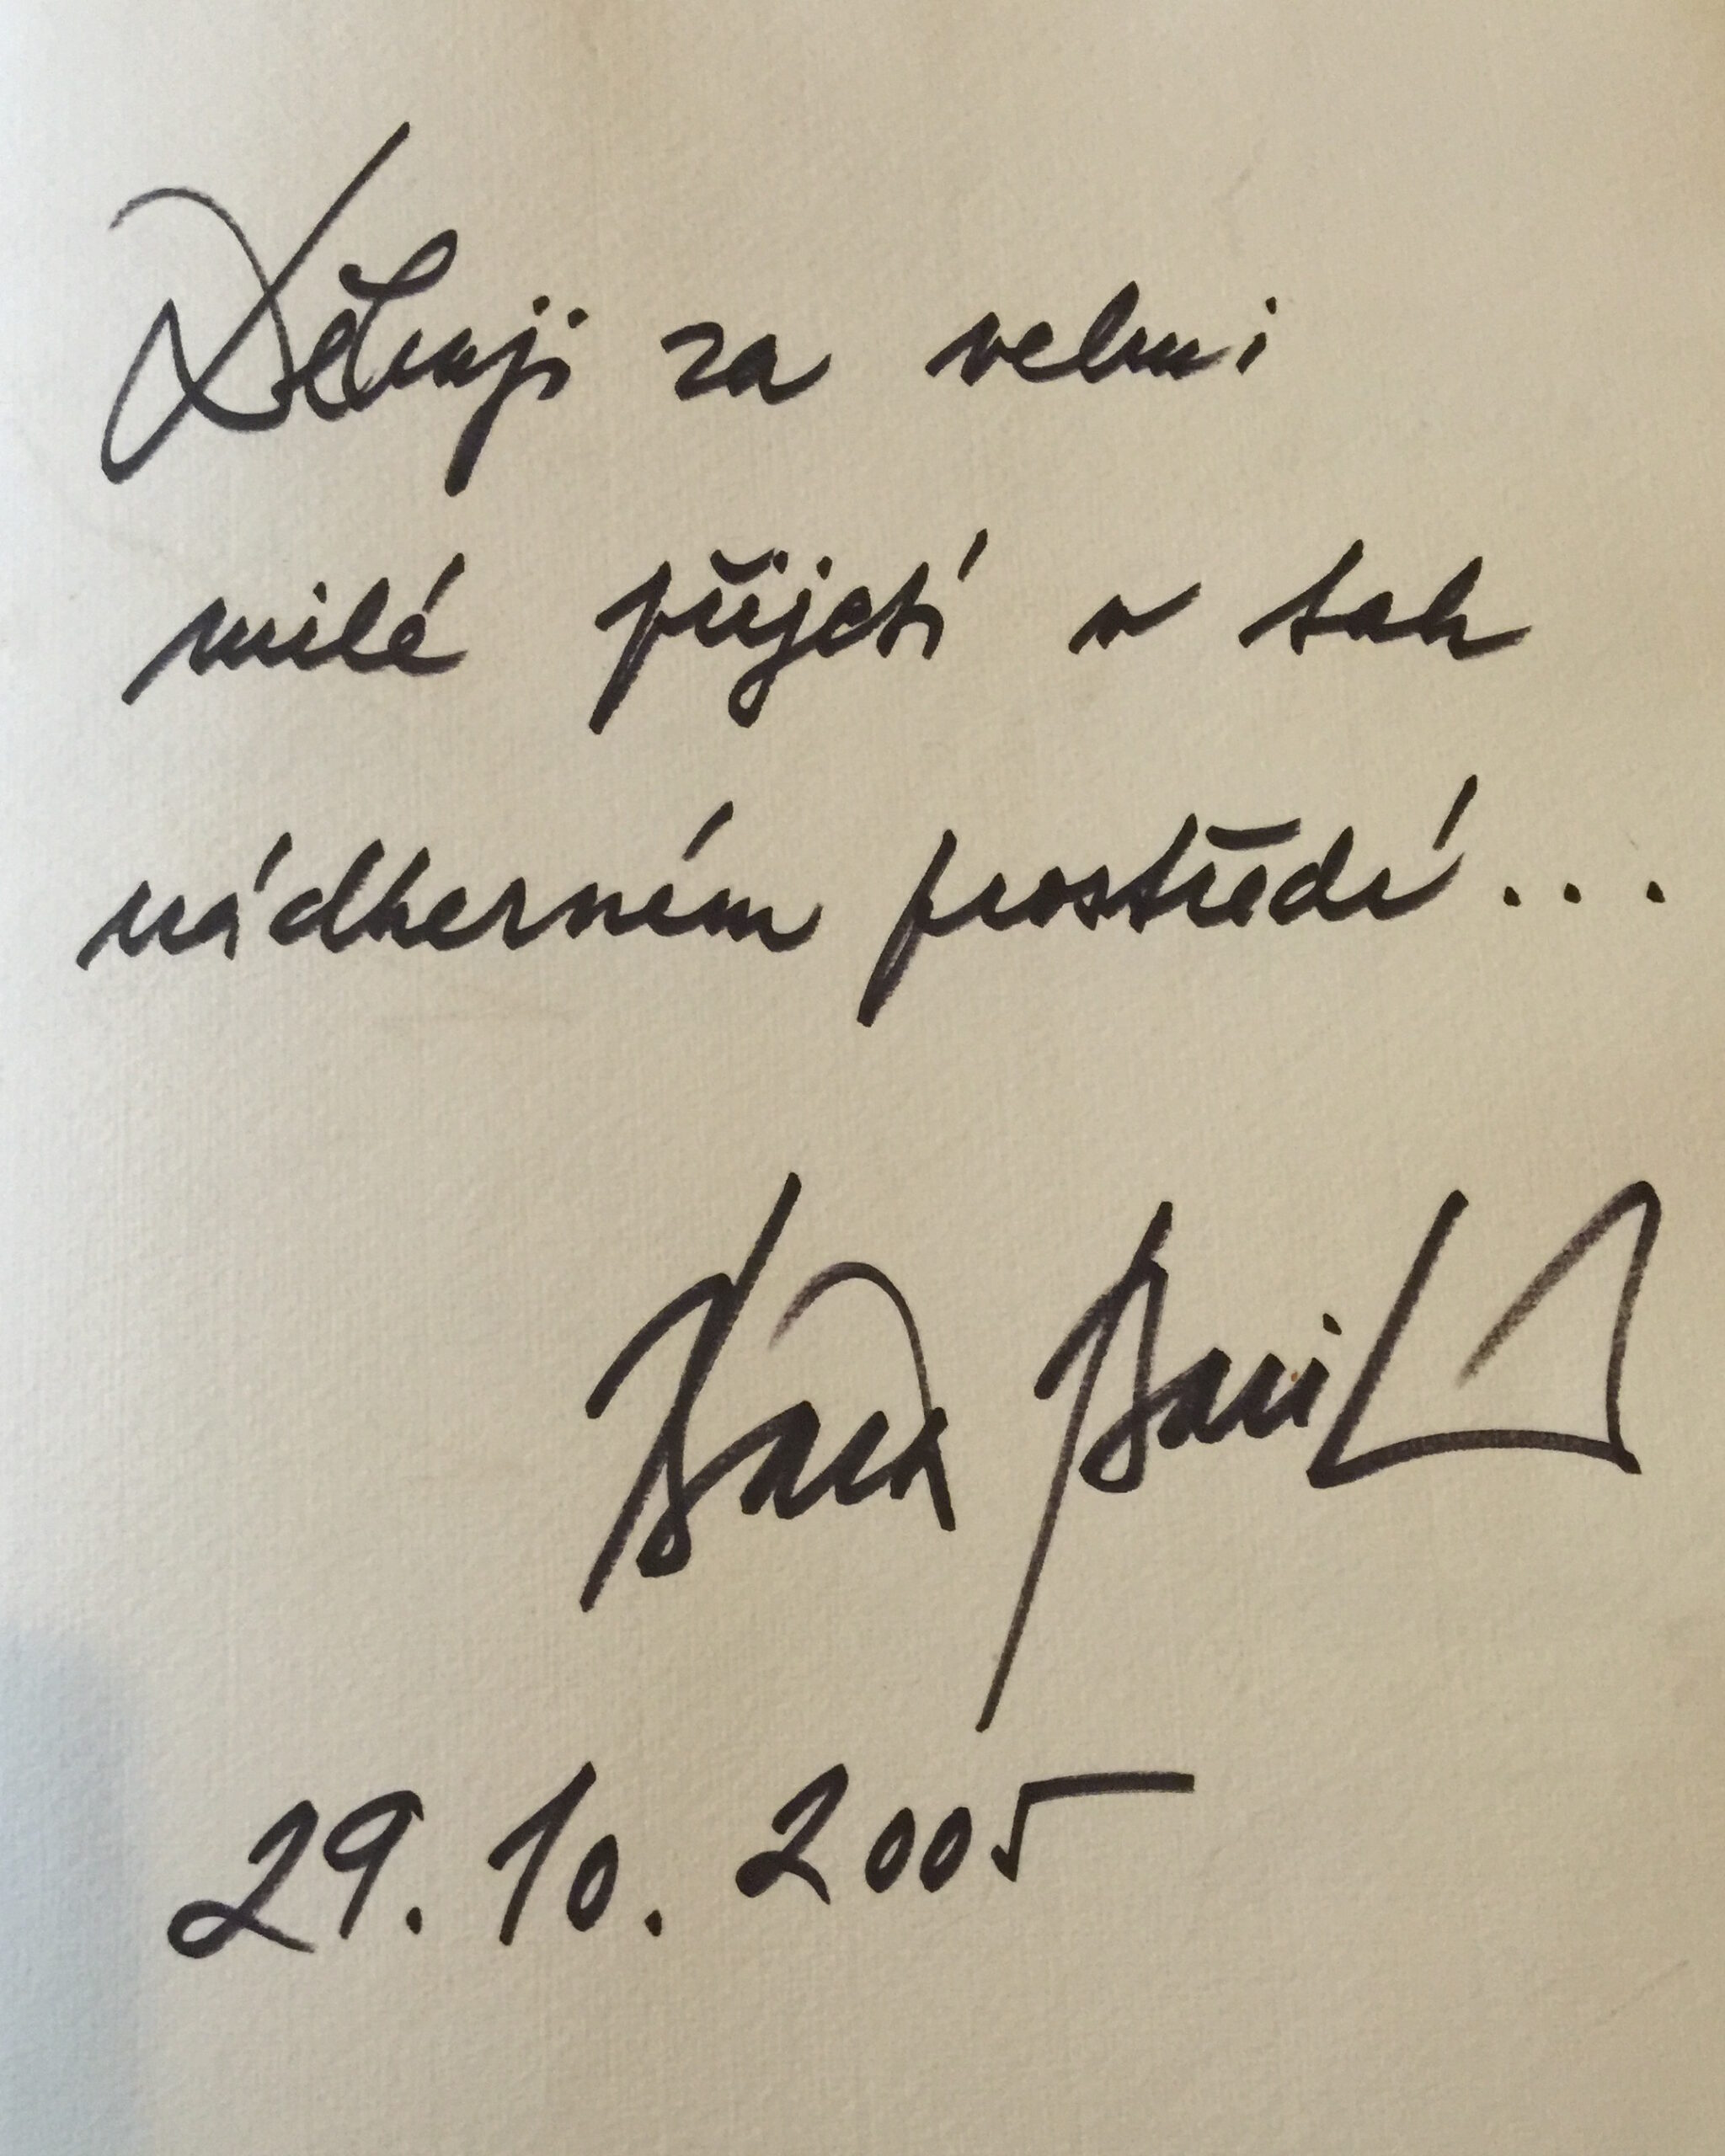 Děkuji za velmi
milé přijetí v tak
nádherném prostředí...
29. 10. 2005